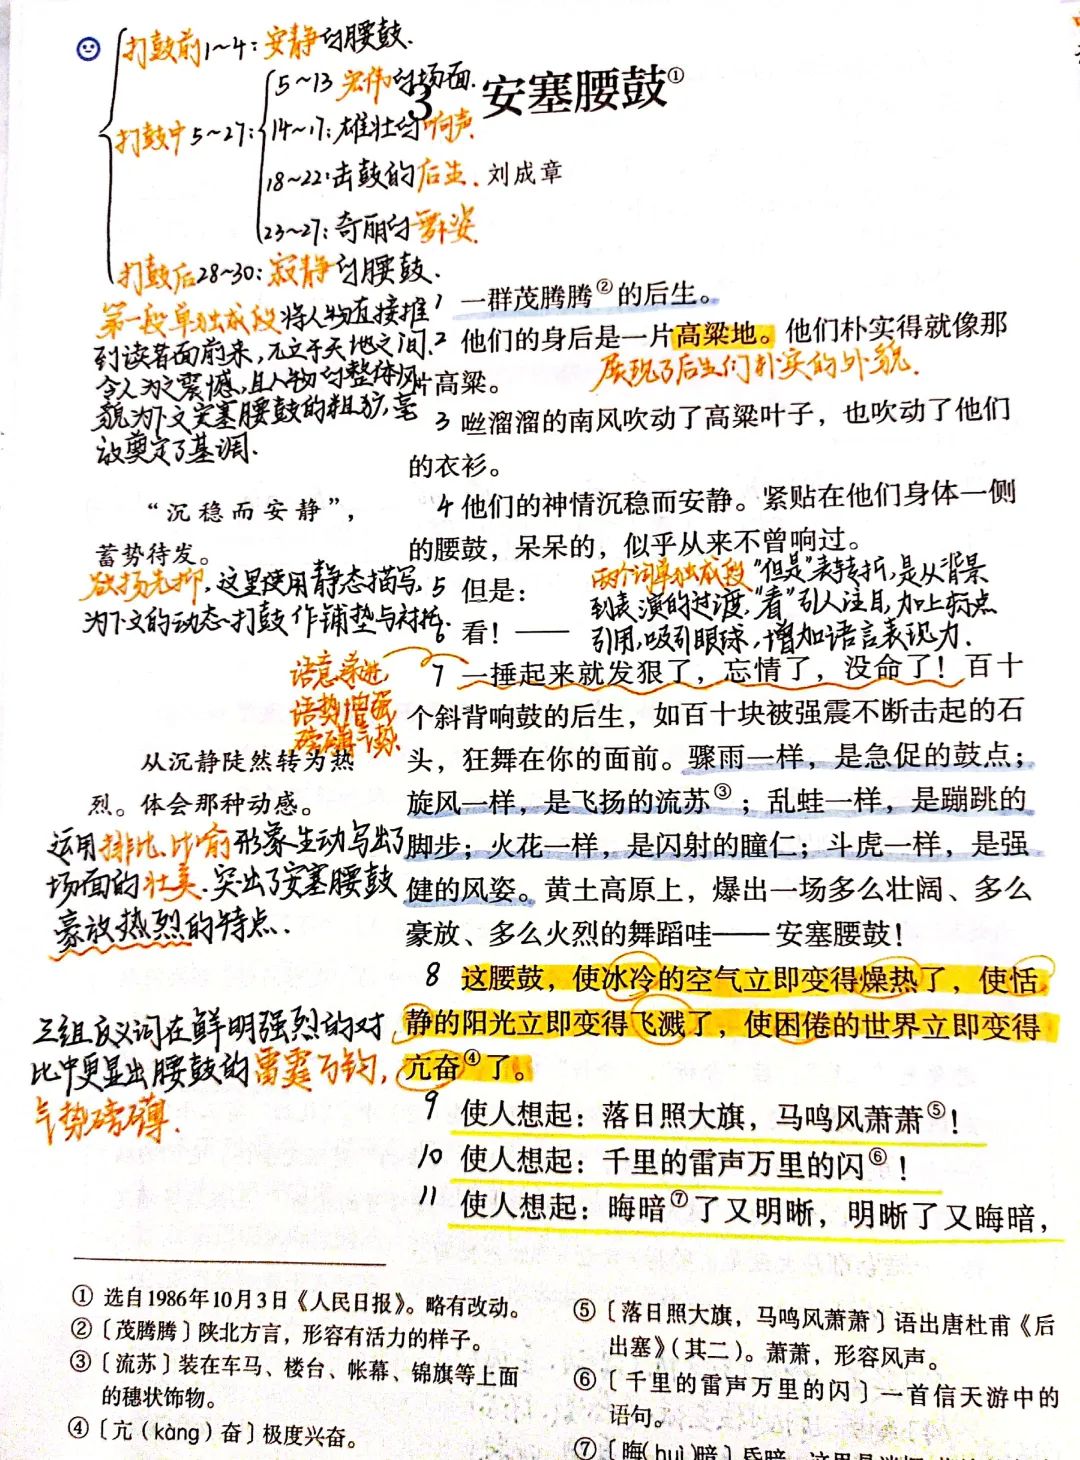 打鼓前1~4：安静的腰鼓.
5~13 宏伟的场面.
3 安塞腰鼓①
打鼓中5~27：
14~17：雄壮的响声.
18~22：击鼓的后生.
刘成章
23~27：奇丽的舞姿.
打鼓后28~30：寂静的腰鼓.
第一段单独成段，将人物直接推
到读者面前来，兀立于天地之间.
令人为之震憾，且人物的整体风
貌为下文安塞腰鼓的粗犷，豪
放奠定了基调.
1 一群茂腾腾②的后生。
2 他们的身后是一片高粱地。他们朴实得就像那
片高粱。
展现了后生们朴实的外貌.
3 咝溜溜的南风吹动了高粱叶子，也吹动了他们
的衣衫。
“沉稳而安静”，
蓄势待发。
4 他们的神情沉稳而安静。紧贴在他们身体一侧
的腰鼓，呆呆的，似乎从来不曾响过。
欲扬先抑，这里使用静态描写，
为下文的动态打鼓作铺垫与衬托.
5 但是：
6 看！——
两个词单独成段“但是”表转折，是从背景
到表演的过渡，“看”引人注目，加上标点
引用，吸引眼球，增加语言表现力.
语意递进，
语势增强
磅礴气势.
7 一捶起来就发狠了，忘情了，没命了！百十
个斜背响鼓的后生，如百十块被强震不断击起的石
头，狂舞在你的面前。骤雨一样，是急促的鼓点；
旋风一样，是飞扬的流苏③；乱蛙一样，是蹦跳的
脚步；火花一样，是闪射的瞳仁；斗虎一样，是强
健的风姿。黄土高原上，爆出一场多么壮阔、多么
豪放、多么火烈的舞蹈哇——安塞腰鼓！
从沉静陡然转为热
烈。体会那种动感。
运用排比、比喻形象生动写出了
场面的壮美.突出了安塞腰鼓
豪放热烈的特点.
8 这腰鼓，使冰冷的空气立即变得燥热了，使恬
静的阳光立即变得飞溅了，使困倦的世界立即变得
亢奋④了。
三组反义词在鲜明强烈的对
比中更显出腰鼓的雷霆万钧，
气势磅礴.
9 使人想起：落日照大旗，马鸣风萧萧⑤！
10 使人想起：千里的雷声万里的闪⑥！
11 使人想起：晦暗⑦了又明晰，明晰了又晦暗，
① 选自1986年10月3日《人民日报》。略有改动。
②〔茂腾腾〕陕北方言，形容有活力的样子。
③〔流苏〕装在车马、楼台、帐幕、锦旗等上面
的穗状饰物。
④〔亢（kàng）奋〕极度兴奋。
⑤〔落日照大旗，马鸣风萧萧〕语出唐杜甫《后
出塞》（其二）。萧萧，形容风声。
⑥〔千里的雷声万里的闪〕一首信天游中的
语句。
⑦〔晦(huì)暗〕昏暗。